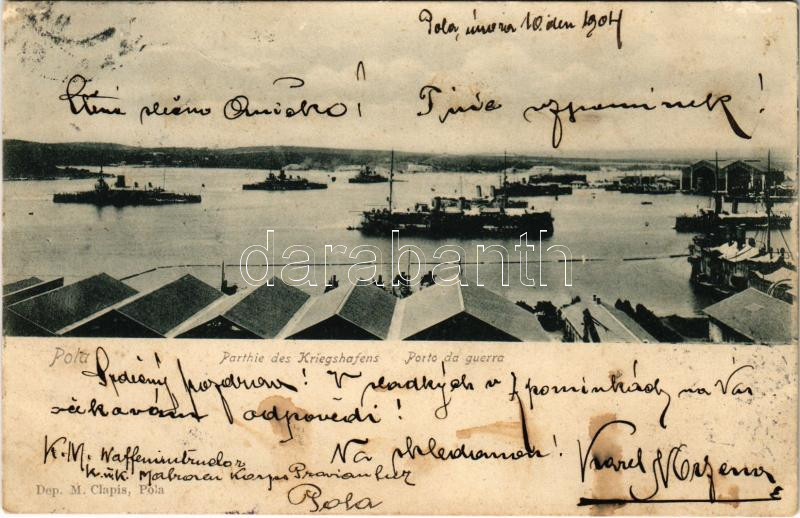 Pola, února 10. den 1904
Ctěná slečno Aničko!
Tisíc vzpomínek!
darabanth.com
Pola
Parthie des Kriegshafens Porto da guerra
Srdečný pozdrav! V sladkých vzpomínkách na Vás
očkávám odpovědi!
K. M. Waffeninstruktor
K. u. K. Matrosen Korps
Na shledanou!
Karel
Pola
Dep. M. Clapis, Pola